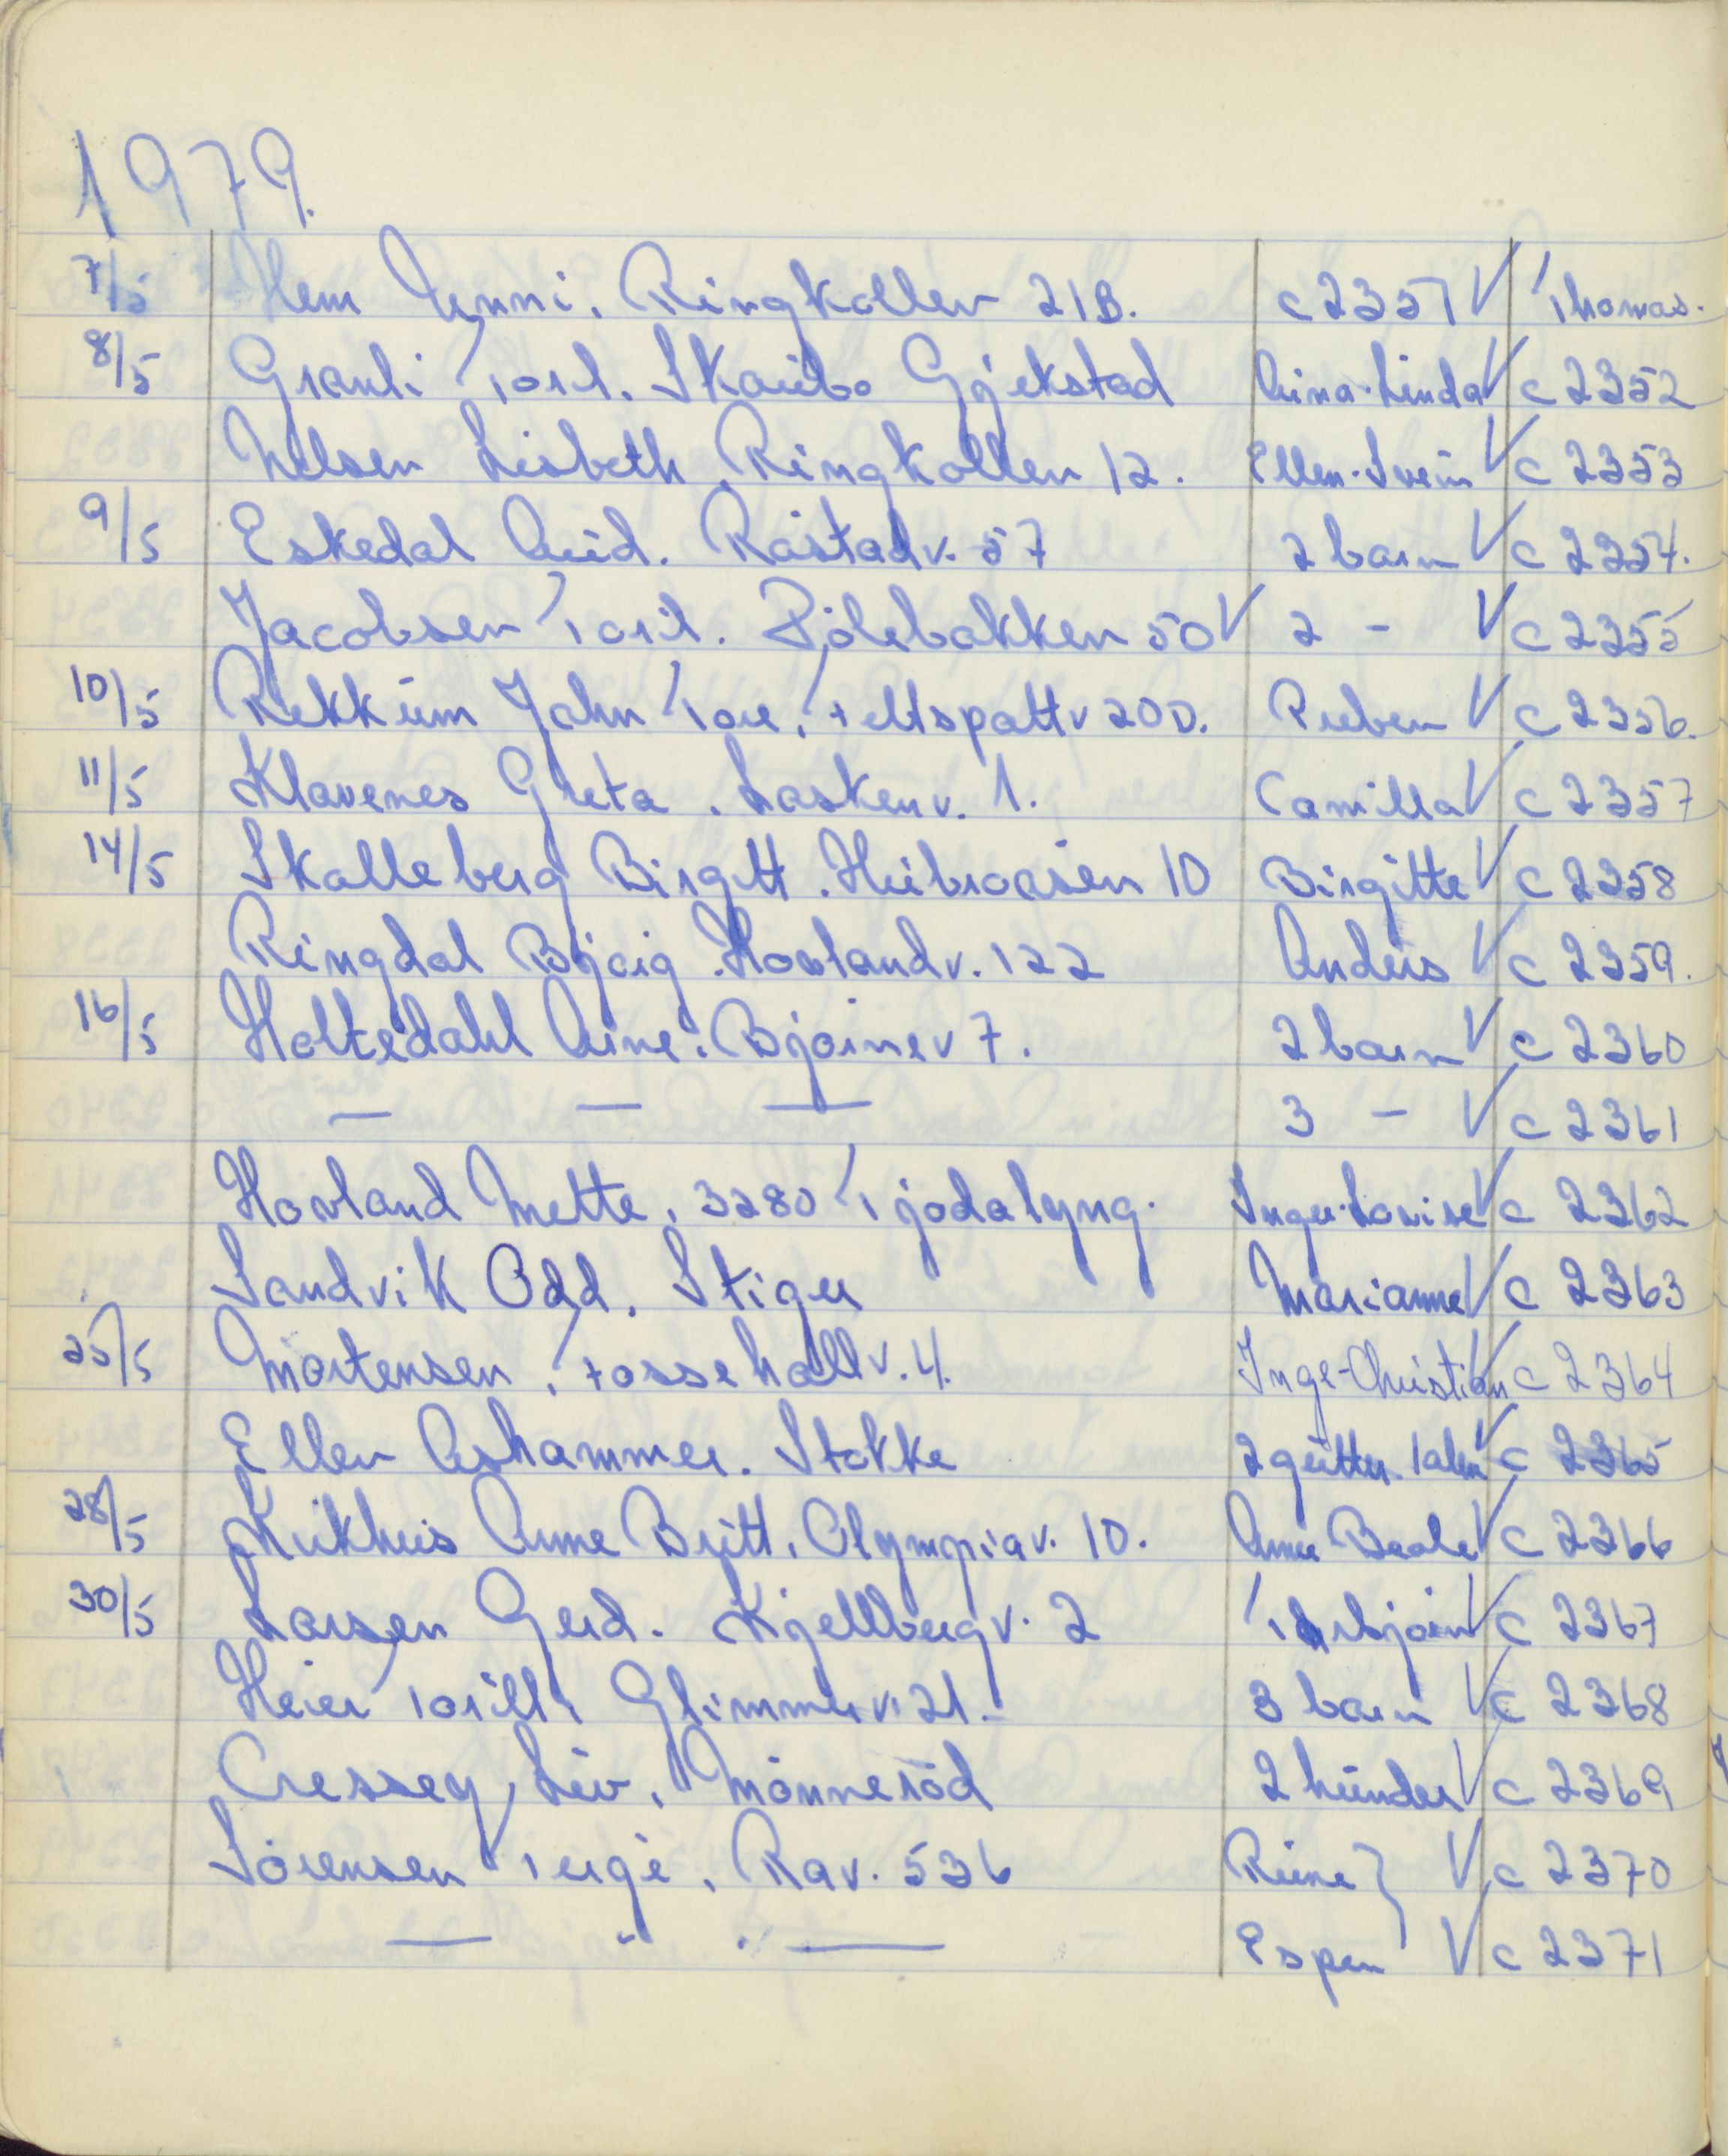 1979.
7/5 Hem Unni. Ringkollen 21B. c 2351 V Thomas.
8/5 Granli Toril. Skauibo Gjekstad Aina-Linda V c 2352
Nilsen Lisbeth, Ringkollen 12. Ellen-Svein V c 2353
9/5 Eskedal Aud. Råstadv. 57 2 barn V c 2354.
Jacobsen Toril. Pölebakken 50 V 2 - V c 2355
10/5 Rekkum John Tore, Feltspattv 20D. Preben V c 2356.
11/5 Klavenes Greta. Laskenv. 1. Camilla V c 2357
14/5 Skalleberg Birgitt. Heibroåsen 10 Birgitte V c 2358
Ringdal Bjørg. Hovlandv. 122 Anders V c 2359.
16/5 Holtedahl Arne. Bjørnev 7. 2 barn V c 2360
— — — 3 - V c 2361
Hovland Mette, 3280 Tjodalyng. Inger-Lovise V c 2362
Sandvik Odd, Stiger Marianne V c 2363
25/5 Mortensen, Fossehallv. 4. Inge-Christian V c 2364
Ellen Ashammer. Stokke 2 gutter V c 2365
28/5 Anne Britt, Olympiav. 10. Anne Beate V c 2366
30/5 Larsen Gerd. Kjellbergv. 2 Torbjørn V c 2367
Heier Torill, Glimmerv. 21. 3 barn V c 2368
Cressey Liv, Mönneröd 2 hunder V c 2369
Sörensen Terje, Rav. 536 Rune } V c 2370
— " — Espen V c 2371